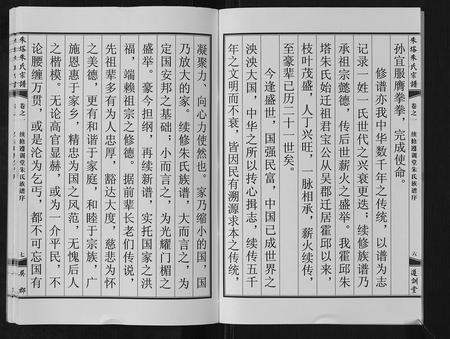 孙宜服膺拳拳，完成使命。
修谱亦我中华数千年之传统，以谱为志
记录一姓一氏世代之兴衰更迭；续修族谱乃
承祖宗懿德，传后世薪火之盛举。我霍邱朱
塔朱氏始迁祖君宝公从吴郡迁居霍邱以来，
枝叶茂盛，人丁兴旺，一脉相承，薪火续传，
至豪辈已历二十一世矣。
今逢盛世，国强民富，中国已成世界之
泱泱大国，中华之所以抟心揖志，续传五千
年之文明而不衰，皆因民有溯源求本之传统，
六
遵训堂
朱塔朱氏宗谱
卷之一
续修遵训堂朱氏族谱序
凝聚力、向心力使然也。家乃缩小的国，国
乃放大的家。续修朱氏族谱，大而言之，为
定国安邦之基础；小而言之，为光耀门楣之
盛举。豪今担纲，再续新谱，实托国家之洪
福，端赖祖宗之修德。据前辈长老们传说，
先祖辈多有为人忠厚，豁达大度，慈悲为怀
之美德，更有和谐于家庭，和睦于宗族，广
施恩惠于家乡，精忠为国之风范，无愧后人
之楷模。无论高官显赫，或为一介平民，不
论腰缠万贯，或是沦为乞丐，都不可忘国有
七
吴郡